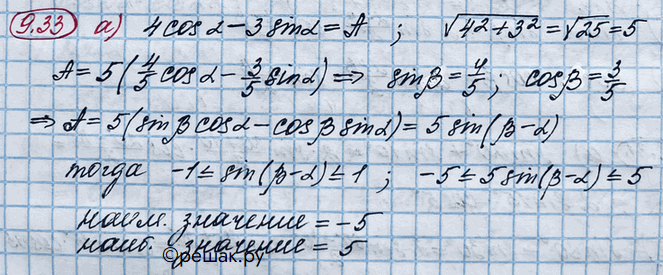 9.33 а) 4cosα − 3sinα = A ; √4²+3² = √25 = 5
A = 5(4/5 cosα − 3/5 sinα) ⇒ sinβ = 4/5; cosβ = 3/5
⇒ A = 5(sinβ cosα − cosβ sinα) = 5 sin(β−α)
тогда −1 ≤ sin(β−α) ≤ 1 ; −5 ≤ 5 sin(β−α) ≤ 5
наим. значение = −5
наиб. значение = 5
©решак.ру